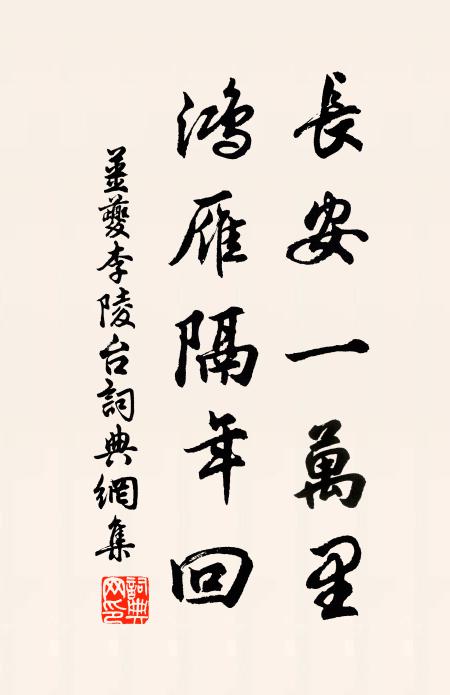 長安一萬里
鴻雁隔年回
並夔李陵台詞典網集
詞典
网印